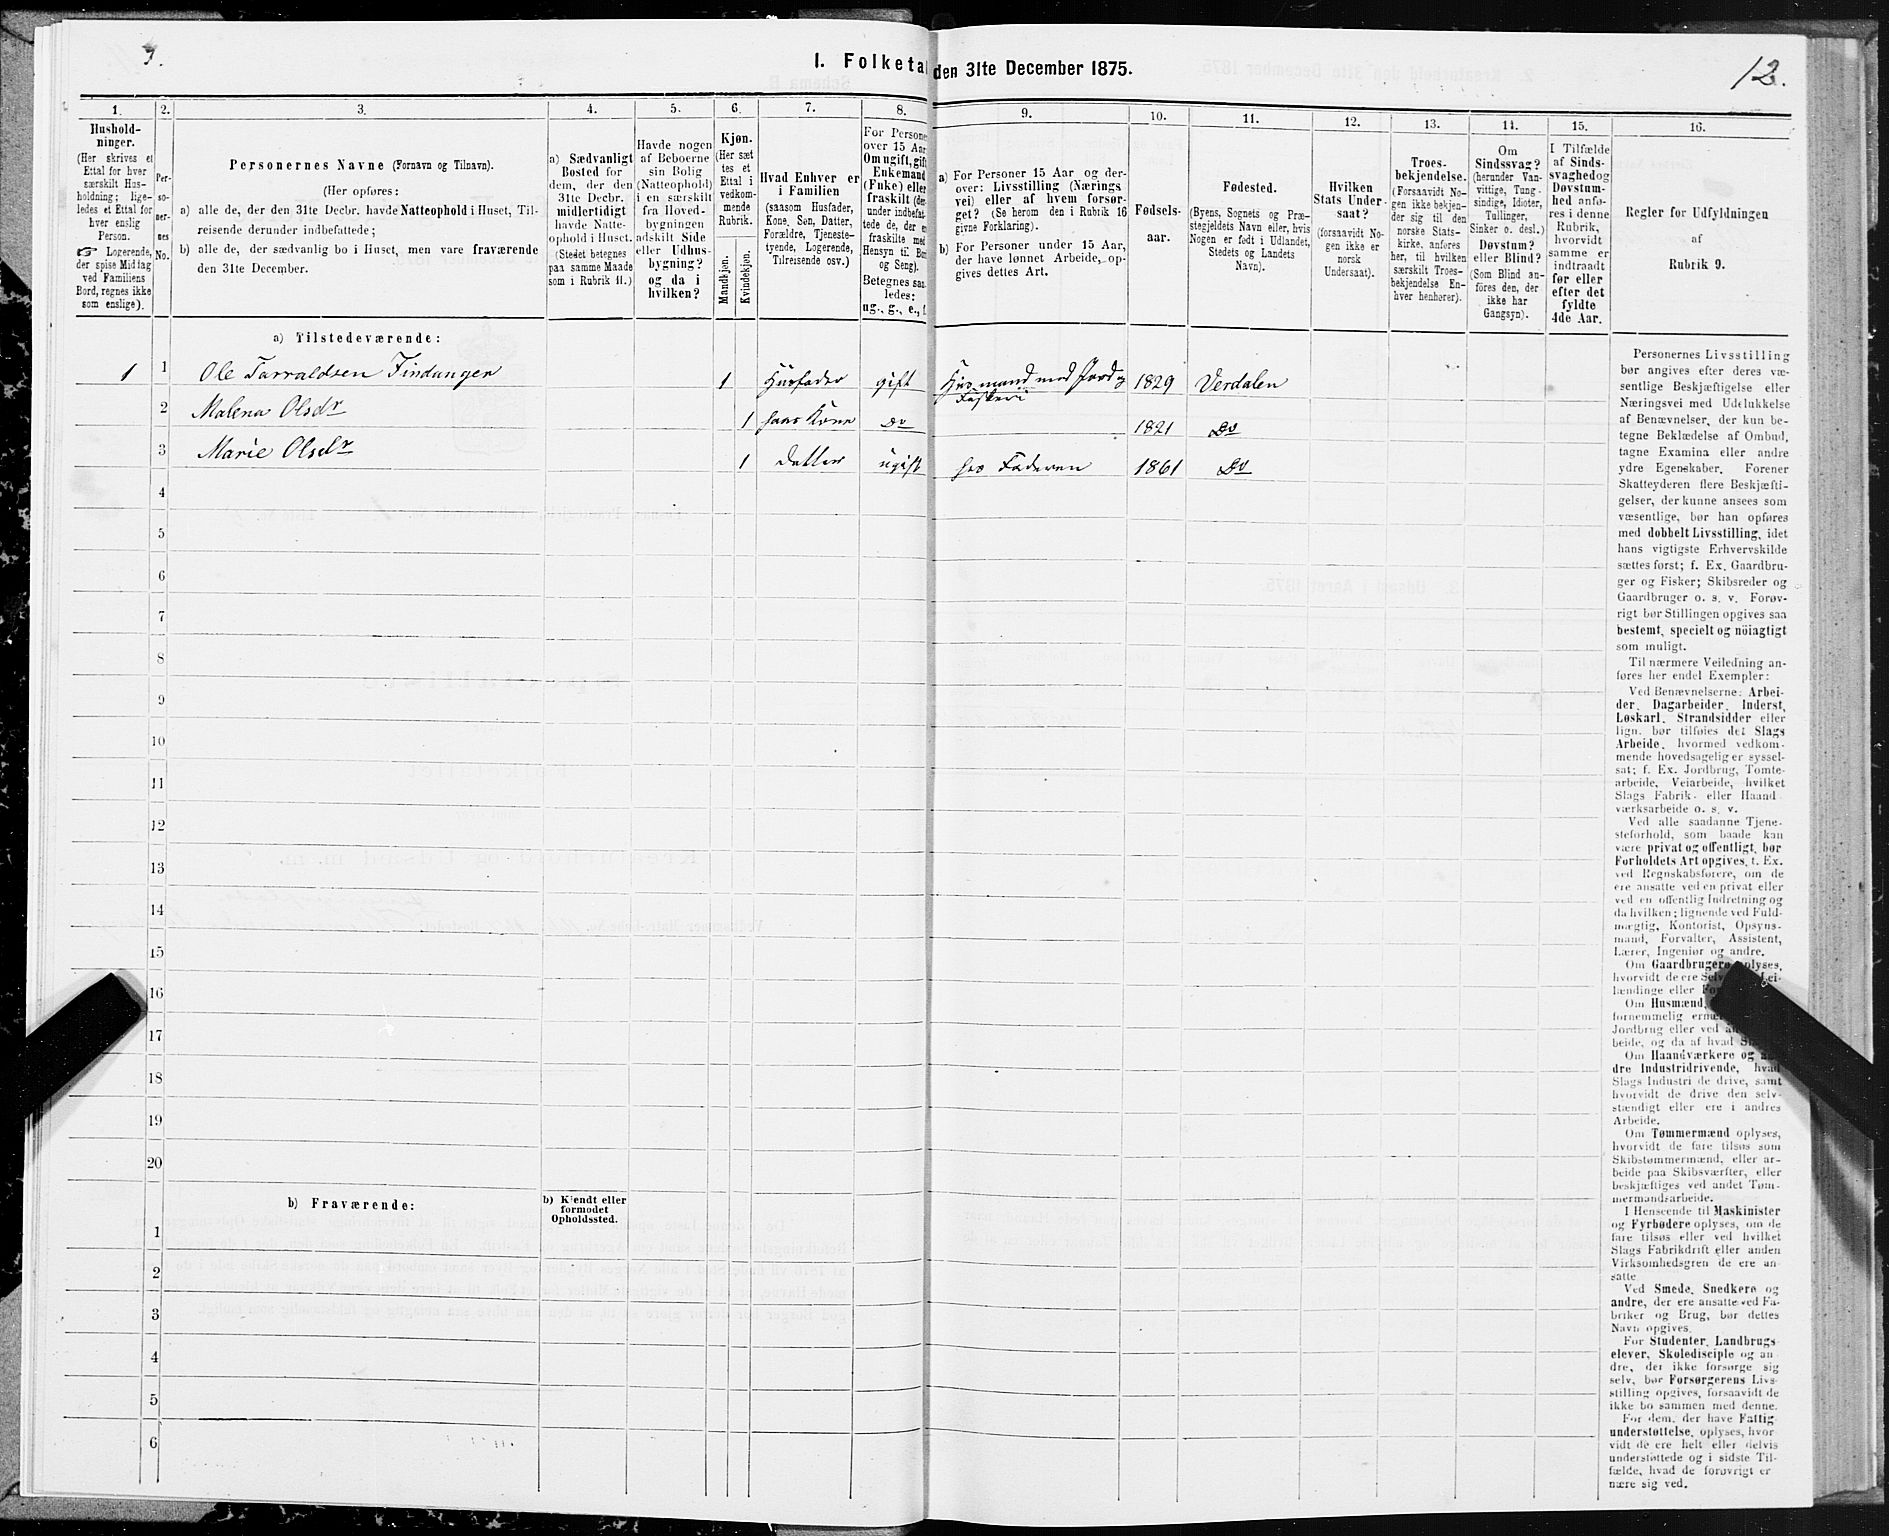 3.
I. Folketal den 31te December 1875.
12.
1.
Hushold-
ninger.
(Her skrives et
Ettal for hver
særskilt Hus-
holdning; lige-
ledes et Ettal for
hver enslig
Person.
☞ Logerende,
der spise Middag
ved Familiens
Bord, regnes ikke
som enslige).
2.
Per-
so-
ner-
nes
No.
3.
Personernes Navne (Fornavn og Tilnavn).
(Her opføres:
a) alle de, der den 31te Decbr. havde Natteophold i Huset, Til-
reisende derunder indbefattede;
b) alle de, der sædvanlig bo i Huset, men vare fraværende
den 31te December.
4.
a) Sædvanligt
Bosted for
dem, der den
31te Decbr.
midlertidigt
havde Natte-
ophold i Huset.
(Stedet betegnes
paa samme Maade
som i Rubrik 11.)
5.
Havde nogen
af Beboerne
sin Bolig
(Natteophold)
i en særskilt
fra Hoved-
bygningen
adskilt Side
eller Udhus-
bygning?
og da i
hvilken?
6.
Kjøn.
(Her sæt
tes et
Ettal i
vedkom-
mende
Rubrik.
Mandkjøn.
Kvindekjøn.
7.
Hvad Enhver er
i Familien
(saasom Husfader,
Kone, Søn, Datter,
Forældre, Tjeneste-
tyende, Logerende,
Tilreisende osv.)
8.
For Persone
over 15 Aar
Om ugift, gift
Enkemand
(Enke) eller
fraskilt (der
under indbefat
tede de, der e
fraskilte med
Hensyn til Bo
og Seng).
Betegnes saa
ledes:
ug., g., e., f.
9.
a) For Personer 15 Aar og der-
over: Livsstilling (Nærings
vei) eller af hvem forsør-
get? (Se herom den i Rubrik 16
givne Forklaring).
b) For Personer under 15 Aar,
der have lønnet Arbeide, op-
gives dettes Art.
10.
Fødsels-
aar.
11.
Fødested.
(Byens, Sognets og Præ-
stegjeldets Navn eller, hvis
Nogen er født i Udlandet,
Stedets og Landets
Navn).
12.
Hvilken
Stats Under-
saat?
(forsaavidt No-
gen ikke er
norsk
Undersaat).
13.
Troes-
bekjendelse.
(Forsaavidt No-
gen ikke bekjen-
der sig til den
norske Stats-
kirke, anføres
her, til hvilken
særskilt Troes-
bekjendelse En-
hver henhører).
14.
Om
Sindssvag?
(herunder Van-
vittige, Tung-
sindige, Idioter,
Tullinger,
Sinker o. desl.)
Døvstum?
eller Blind?
(Som Blind an-
føres den, der
ikke har
Gangsyn).
15.
I Tilfælde
af Sinds-
svaghed og
Døvstum-
hed anfø-
res i denne
Rubrik,
hvorvidt
samme er
indtraadt
før eller
efter det
fyldte
4de Aar.
16.
Regler for Udfyldningen
af
Rubrik 9.
a) Tilstedeværende:
1 1 Ole Tarraldsen Findanger 1 Husfader gift Husmand med Jord og Fiskeri 1829 Verdalen
2 Malena Olsdr 1 hans Kone Do 1821 Do
3 Marie Olsdr 1 datter ugift hos Faderen 1861 Do
4
5
6
7
8
9
10
11
12
13
14
15
16
17
18
19
20
b) Fraværende:
b) Kjendt eller
formodet
Opholdssted.
1
2
3
4
5
6
Personernes Livsstilling
bør angives efter deres væ-
sentlige Beskjæftigelse eller
Næringsvei med Udelukkelse
af Benævnelser, der kun be-
tegne Beklædelse af Ombud,
tagne Examina eller andre
ydre Egenskaber. Forener
Skatteyderen flere Beskjæfti-
gelser, der kunne ansees som
væsentlige, bør han opføres
med dobbelt Livsstilling, idet
hans vigtigste Erhvervskilde
sættes først; f. Ex. Gaardbru-
ger og Fisker; Skibsreder og
Gaardbruger o. s. v. Forøv-
rigt bør Stillingen opgives saa
bestemt, specielt og nöiagtigt
som muligt.
Til nærmere Veiledning an-
føres her endel Exempler:
Ved Benævnelserne: Arbei-
der, Dagarbeider, Inderst,
Løskarl, Strandsidder eller
lign. bør tilføies det Slags
Arbeide, hvormed vedkom-
mende hovedsagelig er syssel-
sat; f. Ex. Jordbrug, Tomte-
arbeide, Veiarbeide, hvilket
Slags Fabrik- eller Haand-
værksarbeide o. s. v.
Ved alle saadanne Tjene-
steforhold, som baade kan
være privat og offentligt, bør
Forholdets Art opgives, t. Ex.
ved Regnskabsførere, om de
ere ansatte ved en privat eller
ved en offentlig Indretning og
da hvilken; lignende ved Fuld-
mægtig, Kontorist, Opsyns-
mand, Forvalter, Assistent,
Lærer, Ingeniør og andre.
Om Gaardbrugere oplyses,
hvorvidt de ere Selv Lei-
lændinge eller
Om Husmænd,
fornemmelig
Jordbrug eller ved
beide, og da af hvad
Om Haandværkere og an-
dre Industridrivende, hvad
Slags Industri de drive, samt
hvorvidt de drive den selv-
stændigt eller ere i andres
Arbeide.
Om Tømmermænd oplyses,
hvorvidt de fare tilsøs som
Skibstømmermænd, eller ar-
beide paa Skibsværfter, eller
beskjæftiges ved andet Tøm-
mermandsarbeide.
I Henseende til Maskinister
og Fyrbødere oplyses, om de
fare tilsøs eller ved hvilket
Slags Fabrikdrift eller anden
Virksomhedsgren de ere an-
satte.
Ved Smede, Snedkere og
andre, der ere ansatte ved Fa-
briker og Brug, bør dettes
Navn opgives.
For Studenter, Landbrugs
elever, Skoledisciple og an
dre, der ikke forsørge sig
selv, bør Forsørgerens Livs-
stilling opgives, forsaavidt de
ikke bo sammen med denne.
For dem, der have Fattig-
understøttelse, oplyses, hvor
vidt de ere helt eller delvis
understøttede og i sidste Til-
fælde, hvad de forøvrigt er
nære sig ved.